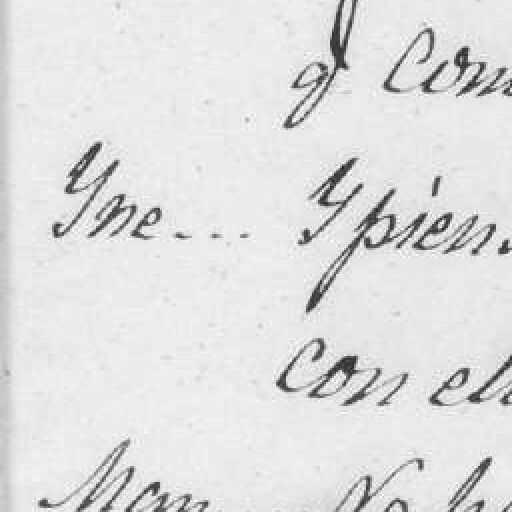 q^e com
Yne... Y pien
con el
Man No h